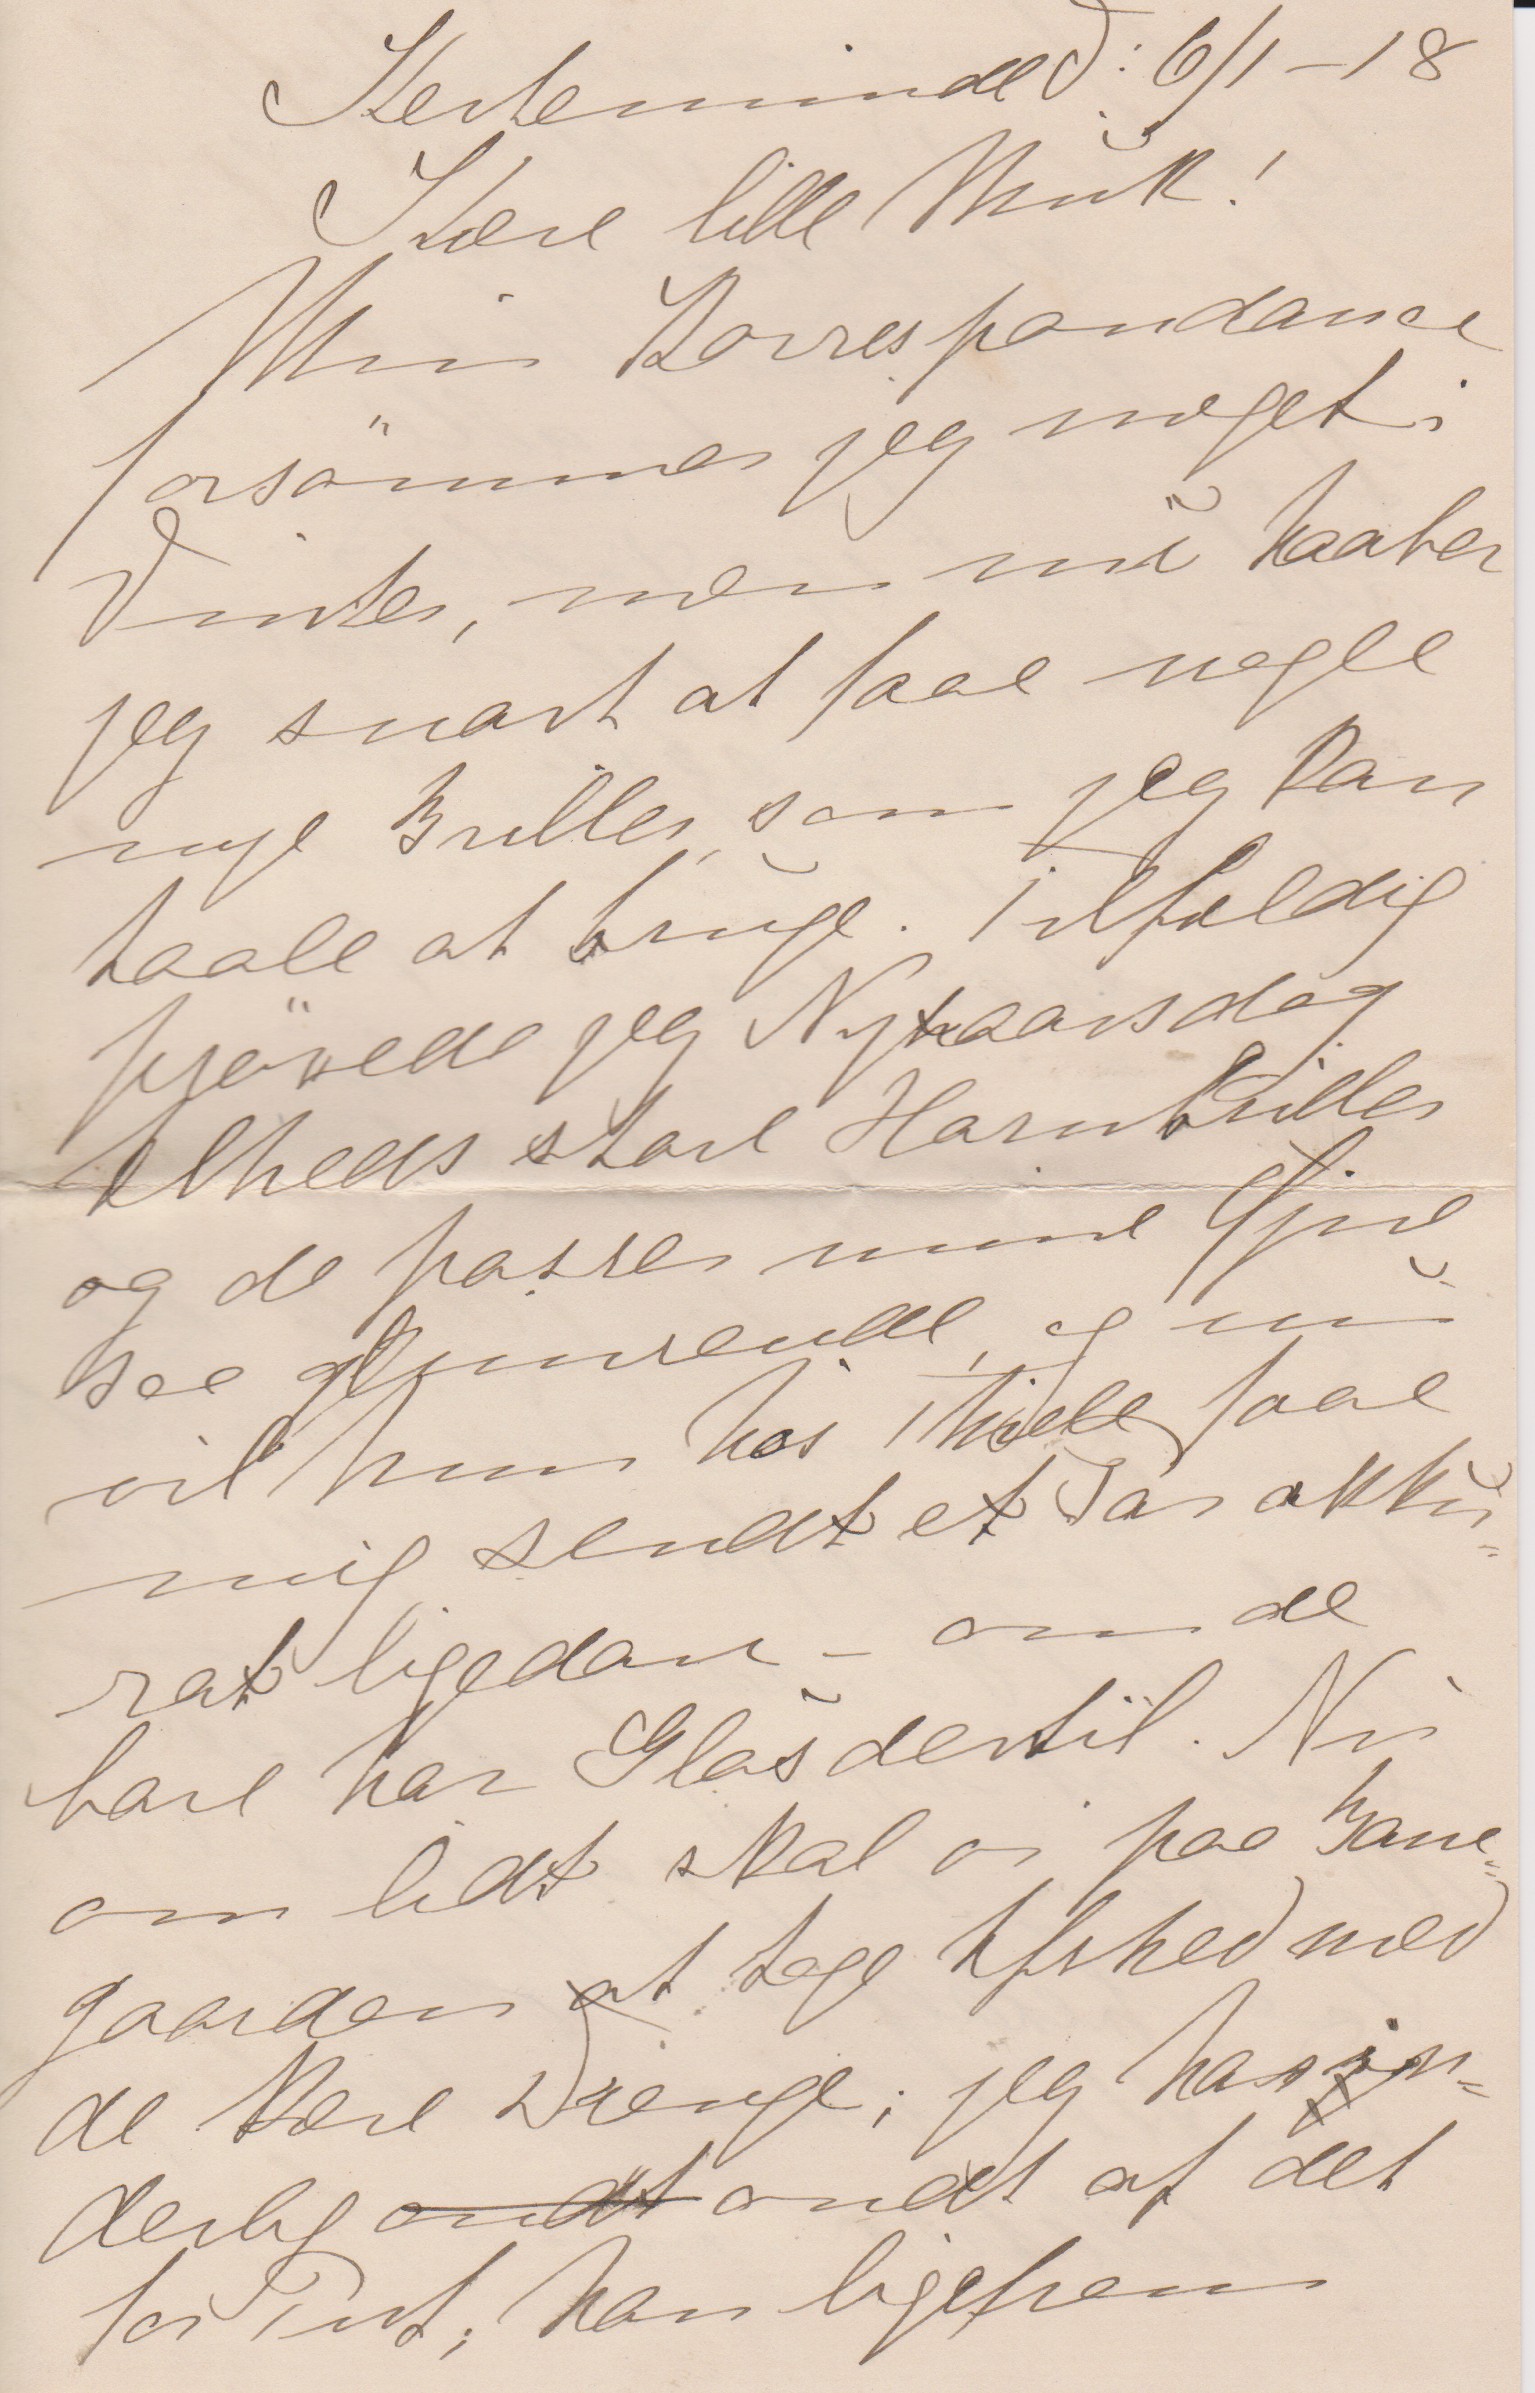 Kerteminde d: 6/1-18
Kære lille Muk!
Min Korrespondance
forsömmer jeg meget i
Vinter, men nu haaber
jeg snart at faae nogle
nye Briller, som jeg kan
taale at bruge. Tilfældig
prövede jeg Nytaarsdag
store Hornbriller
og de passer mine Øjne
saa glimrende, og nu
vil hun hos Thiele faae
mig sendt et Par akku=
rat ligedan - om de
bare har Glas dertil. Nu
om lidt skal vi paa Bane=
gaarden at tage Afsked med
de kære Drenge; jeg har in=
derlig ondt ondt af det
for Tut; han ligefrem